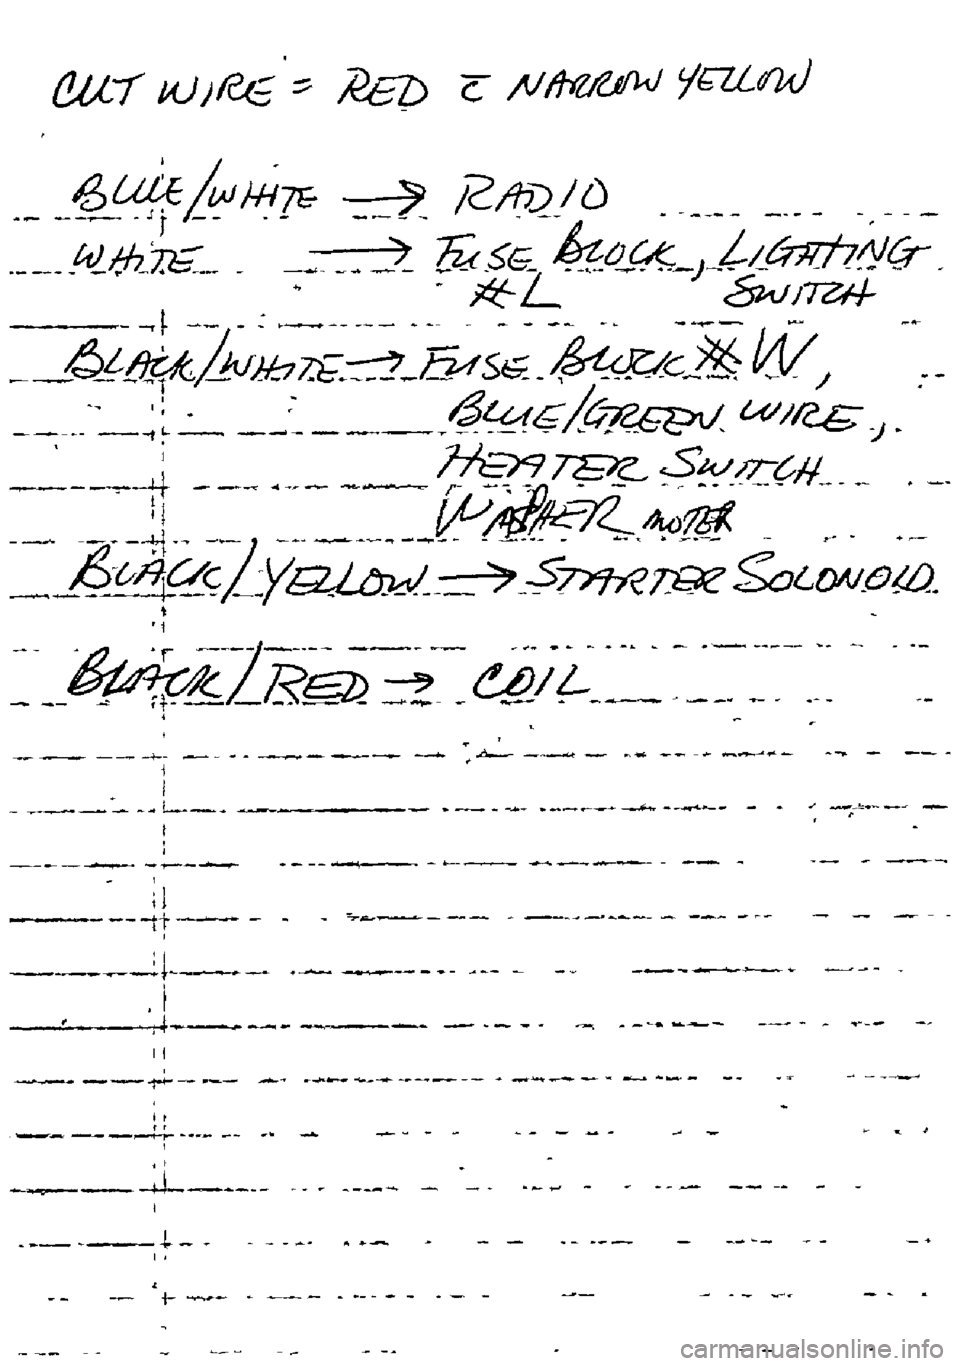 CUT WIRE = RED c̄ NARROW YELLOW
BLUE/WHITE → RADIO
WHITE → FUSE BLOCK, LIGHTING
#L SWITCH
BLACK/WHITE → FUSE BLOCK #W,
BLUE/GREEN WIRE,
HEATER SWITCH
WASHER MOTER
BLACK/YELLOW → STARTER SOLONOID
BLACK/RED → COIL
carmanualsonline.info